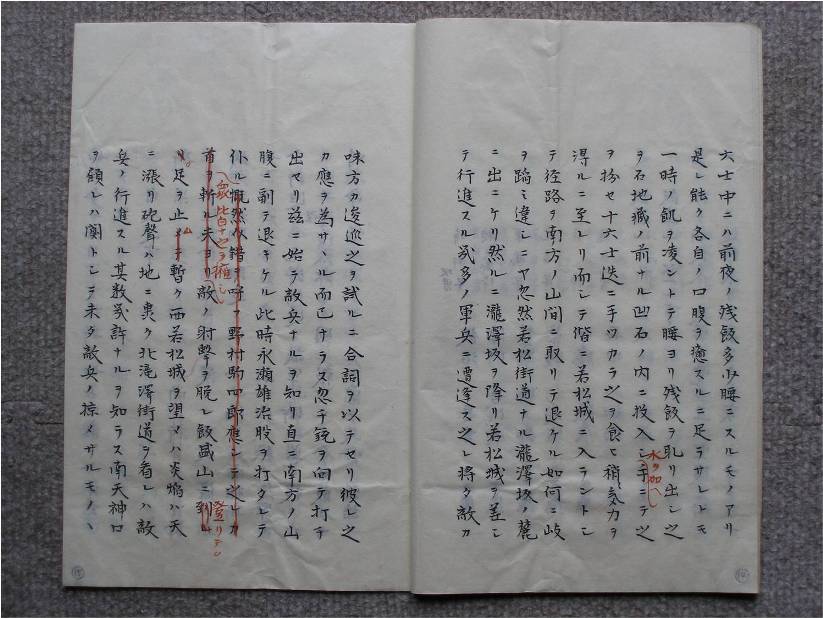 六士中ニハ前夜ノ残飯多少腰ニスルモノアリ
是レ能ク各自ノ口腹ヲ癒スルニ足ラサレトモ
一時ノ飢ヲ凌ントテ腰ヨリ残飯ヲ取リ出シ之
ヲ石地蔵ノ前ナル凹石ノ内ニ投入シ手ニテ之
水ヲ加ヘ
ヲ扮セ十六士迭ニ手ツカラ之ヲ食ヒ稍気力ヲ
得ルニ至レリ而シテ偕ニ若松城ニ入ラントシ
テ径路ヲ南方ノ山間ニ取リテ退ケル如何ニ岐
ヲ踏ミ違シニヤ忽然若松街道ナル瀧澤坂ノ麓
ニ出ニケリ然ルニ瀧澤坂ヲ降リ若松城ヲ差シ
テ行進スル幾多ノ軍兵ニ遭逢ス之レ将タ敵カ
味方カ逡巡之ヲ試ルニ合詞ヲ以テセリ彼レ之
カ應ヲ為サヽル而已ナラス忽チ銃ヲ向テ打チ
出セリ茲ニ始テ敵兵ナルヲ知リ直ニ南方ノ山
腹ニ副テ退キケル此時永瀬雄治股ヲ打タレテ
仆ル慨然介錯ヲ呼フ野村駒四郎應シテ之レカ
之ヲ擁シ
首ヲ斬ル夫ヨリ敵ノ射撃ヲ脱レ飯盛山ニ到
登リテ
リ足ヲ止メテ暫ク西若松城ヲ望メハ炎焔ハ天
ニ漲リ砲聲ハ地ニ轟ク北滝澤街道ヲ看レハ敵
兵ノ行進スル其数幾許ナルヲ知ラス南天神口
ヲ顧レハ闃トシテ未タ敵兵ノ掠メサルモノヽ